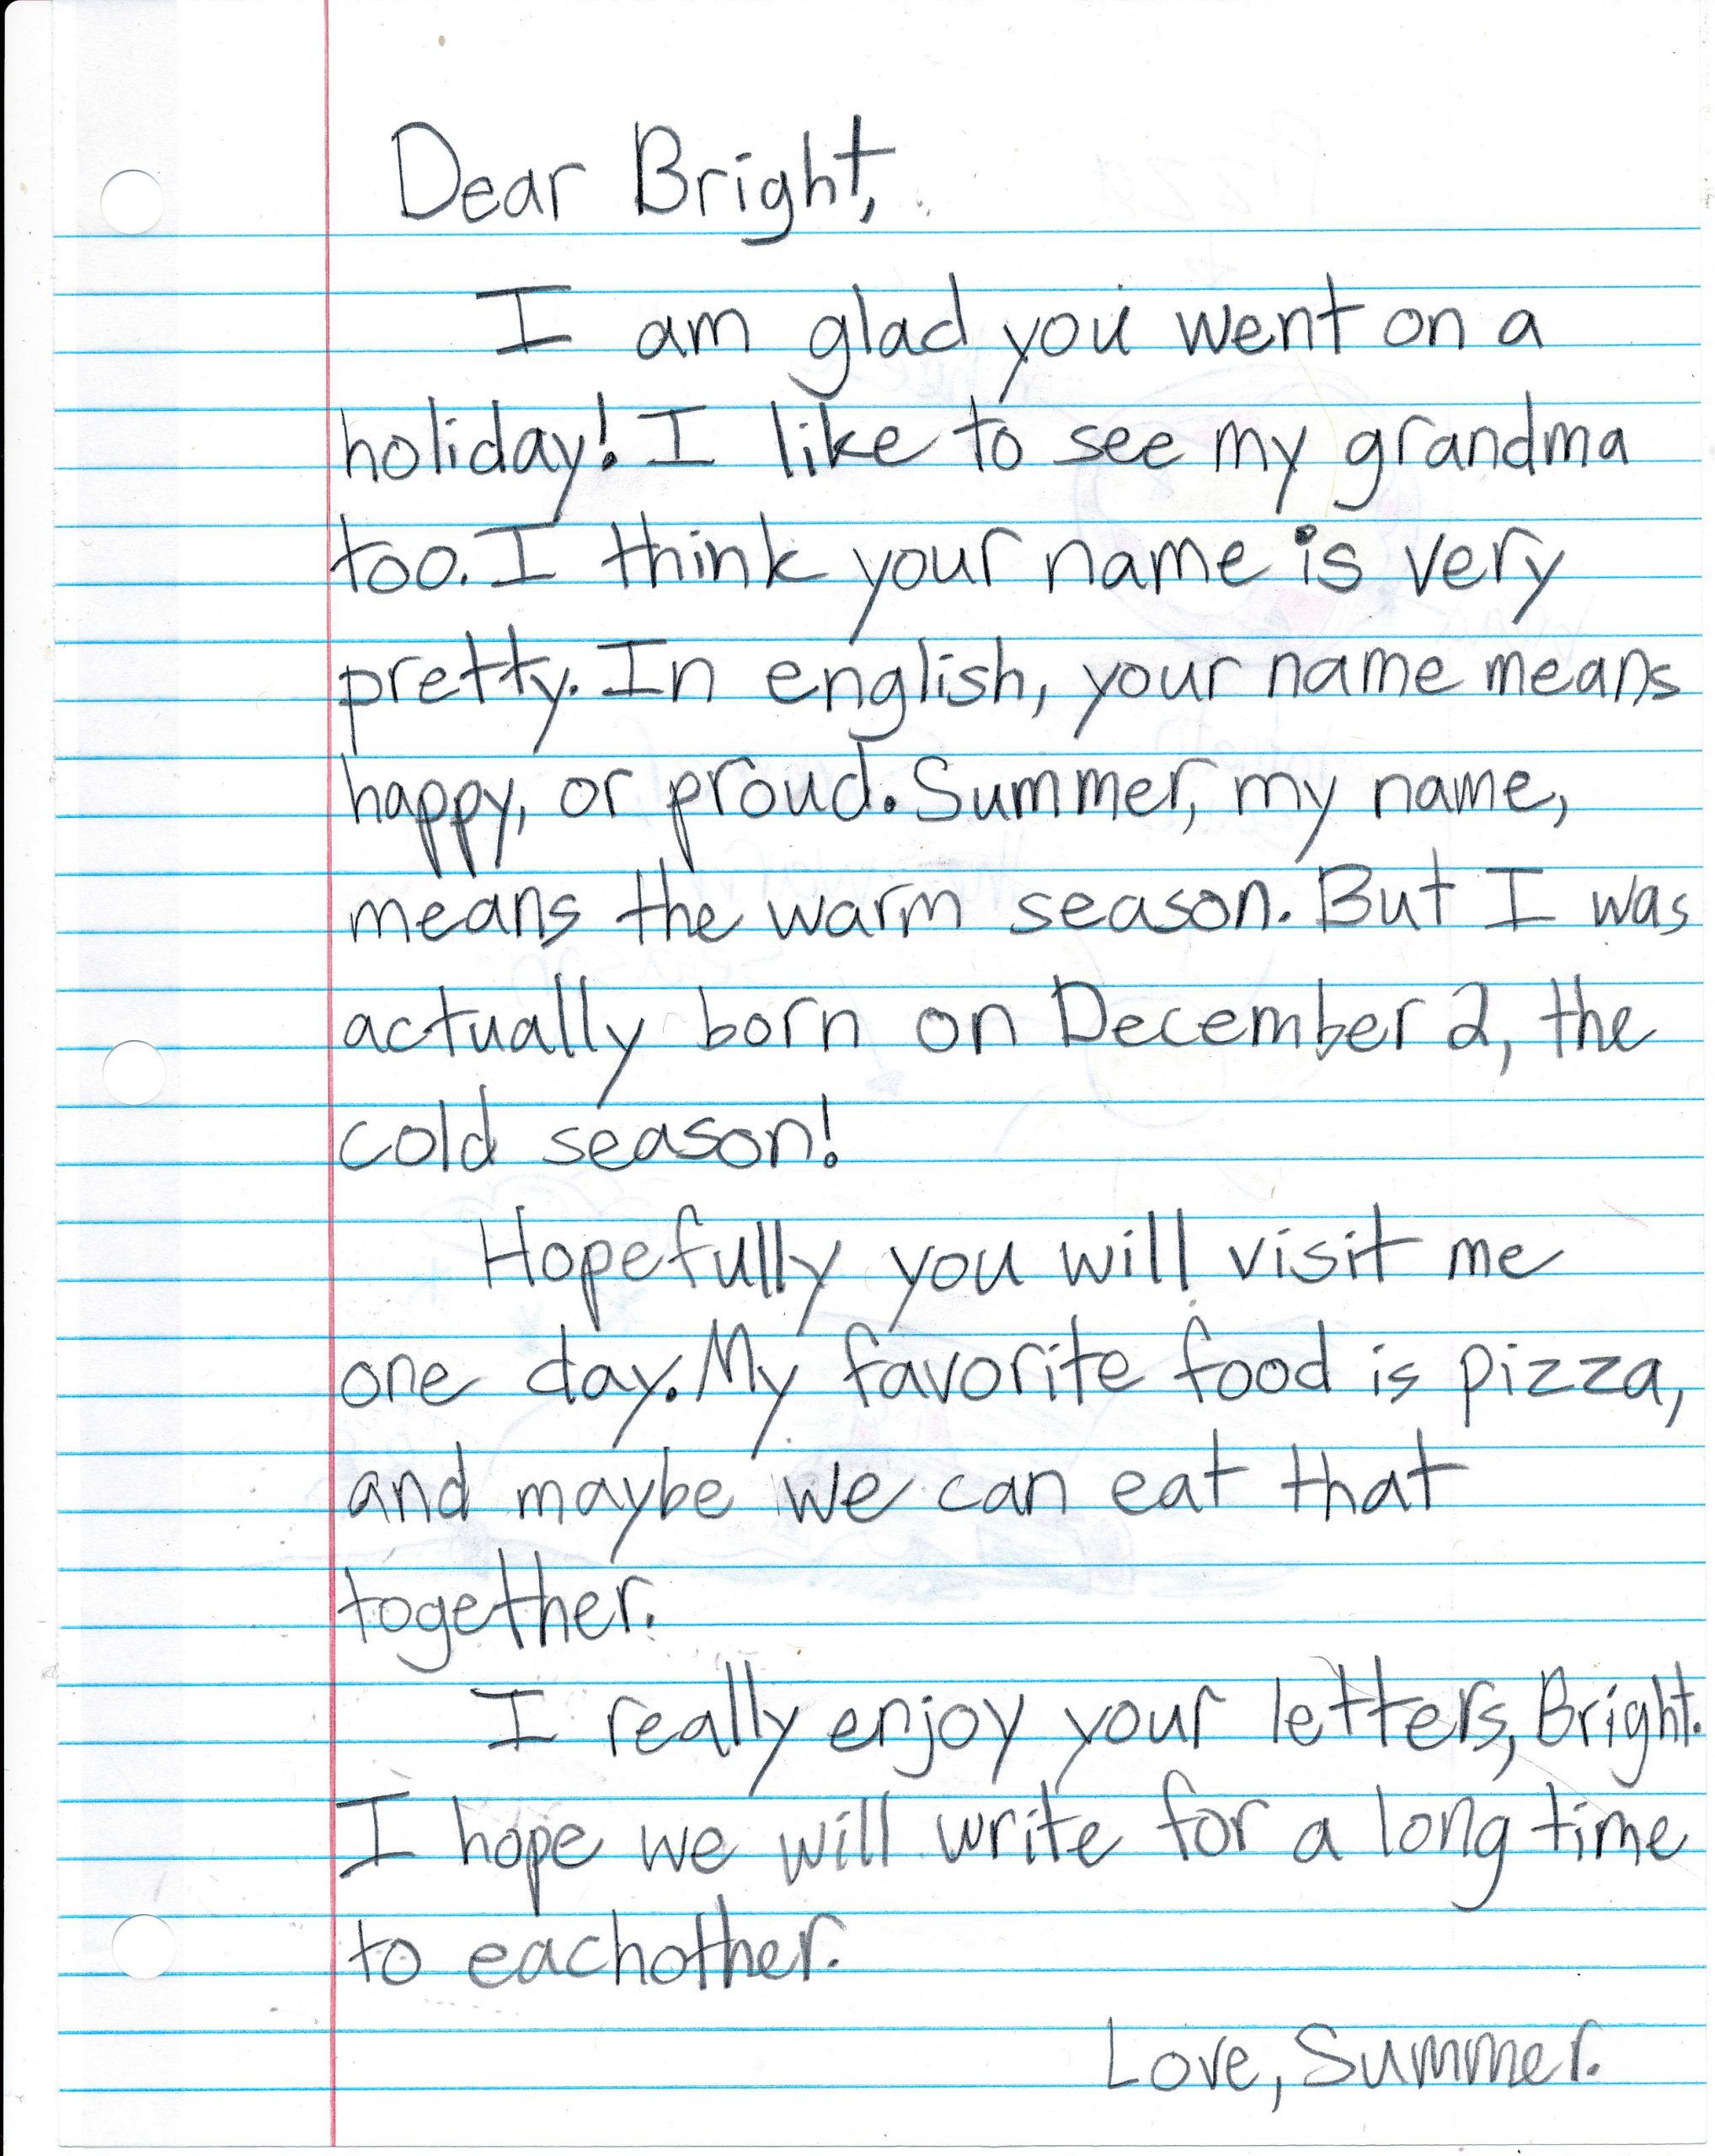 Dear Bright,
I am glad you went on a
holiday! I like to see my grandma
too. I think your name is very
pretty. In english, your name means
happy, or proud. Summer, my name,
means the warm season. But I was
actually born on December 2, the
cold season!
Hopefully you will visit me
one day. My favorite food is pizza,
and maybe we can eat that
together.
I really enjoy your letters, Bright.
I hope we will write for a long time
to eachother.
Love, Summer.